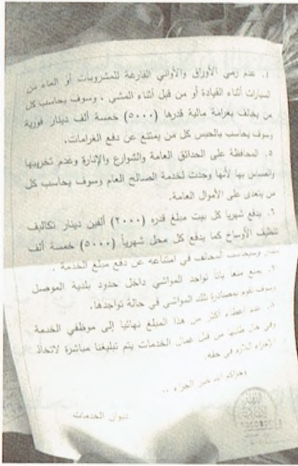 ١. عدم رمي الأوراق والأواني الفارغة للمشروبات أو الماء من
السيارات أثناء القيادة أو من قبل أثناء المشي . وسوف يحاسب كل
من يخالف بغرامة مالية قدرها (٥٠٠٠) خمسة ألف دينار فورية
وسوف يحاسب بالحبس كل من يمتنع عن دفع الغرامات.
٥. المحافظة على الحدائق العامة والشوارع والإنارة وعدم تخريبها
والمساس بها لأنها وجدت لخدمة الصالح العام وسوف يحاسب كل
من يتعدى على الأموال العامة.
٦. يدفع شهريا كل بيت مبلغ قدره (٢٠٠٠) ألفين دينار تكاليف
تنظيف الأوساخ كما يدفع كل محل شهرياً (٥٠٠٠) خمسة ألف
دينار وسيحاسب المخالف في امتناعه عن دفع مبلغ الخدمة .
يمنع منعا باتا تواجد المواشي داخل حدود بلدية الموصل
وسوف نقوم بمصادرة تلك المواشي في حالة تواجدها.
عدم إعطاء أكثر من هذا المبلغ نهائيا إلى موظفي الخدمة
وفي حال طلبها من قبل عمال الخدمات يتم تبليغنا مباشرة لاتخاذ
الإجراء اللازم في حقه.
وجزاكم الله خير الجزاء ..
ديوان الخدمات